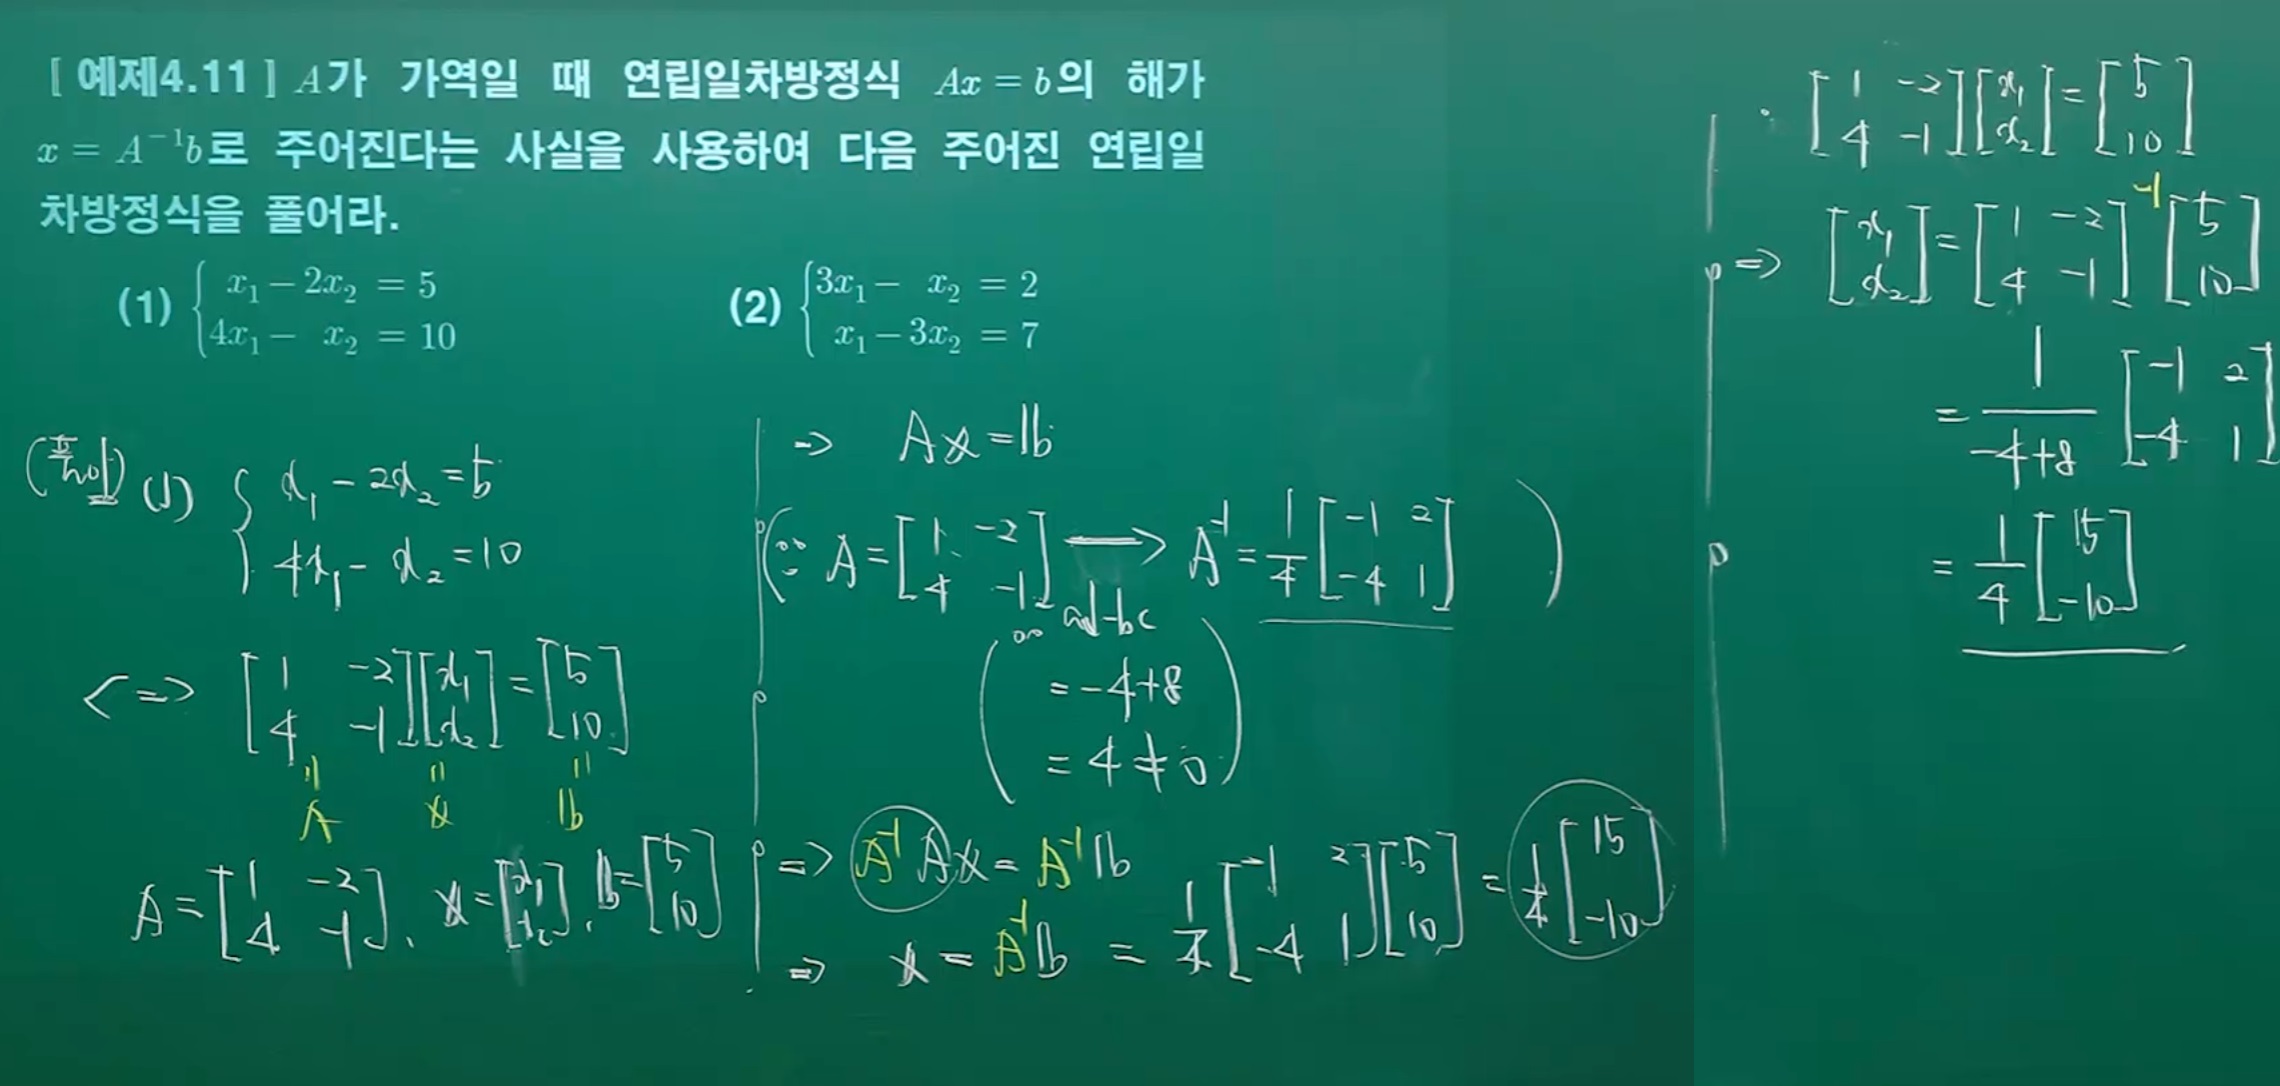 [ 예제4.11 ] A가 가역일 때 연립일차방정식 Ax = b의 해가
x = A⁻¹b로 주어진다는 사실을 사용하여 다음 주어진 연립일
차방정식을 풀어라.
(1) { x₁ − 2x₂ = 5
4x₁ − x₂ = 10
(2) { 3x₁ − x₂ = 2
x₁ − 3x₂ = 7
(풀이) (1) { x₁ − 2x₂ = 5
4x₁ − x₂ = 10
<=> [1 −2; 4 −1][x₁; x₂] = [5; 10]
" " "
A x b
A = [1 −2; 4 −1], x = [x₁; x₂], b = [5; 10]
=> Ax = b
(∵ A = [1 −2; 4 −1] → A⁻¹ = 1/4 [−1 2; −4 1])
(∵ ad−bc
= −4+8
= 4 ≠ 0)
=> A⁻¹Ax = A⁻¹b
=> x = A⁻¹b = 1/4 [−1 2; −4 1][5; 10] = 1/4 [15; −10]
[1 −2; 4 −1][x₁; x₂] = [5; 10]
=> [x₁; x₂] = [1 −2; 4 −1]⁻¹ [5; 10]
= 1/(−4+8) [−1 2; −4 1]
= 1/4 [15; −10]